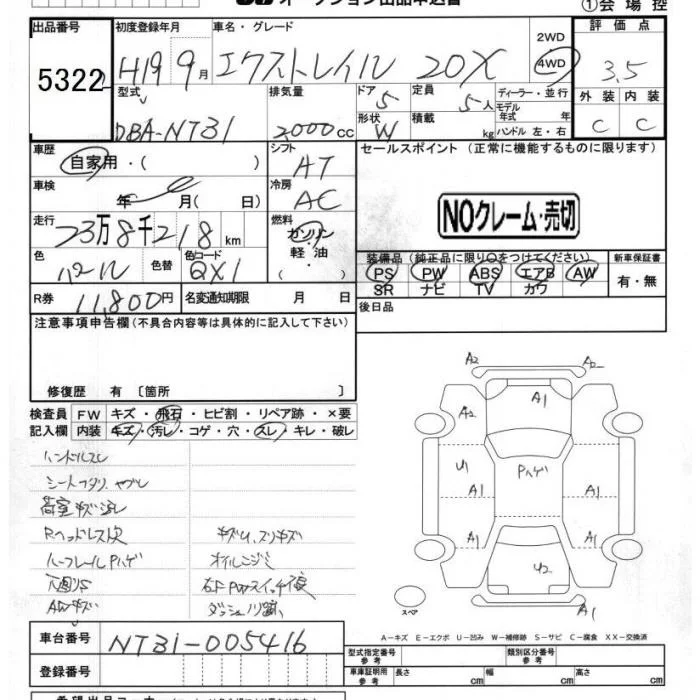 オークション出品申込書
①会場控
出品番号 初度登録年月 車名・グレード 評価点
5322 H19 9月 エクストレイル 20X 2WD 4WD 3.5
型式 排気量 ドア 定員 ディーラー・並行 外装 内装
DBA-NT31 2000cc 5 5人 モデル年式 年 C C
形状 W 積載 kg ハンドル 左・右
車歴 シフト セールスポイント (正常に機能するものに限ります)
自家用・( ) AT
車検 冷房
年 月( 日) AC NOクレーム・売切
走行 燃料
23万8千218km ガソリン
軽油・( )
色 色替 色コード 装備品 (純正品に限り○をつけてください) 新車保証書
パール QX1 PS PW ABS エアB AW 有・無
SR ナビ TV カワ
R券 11,800円 名変通知期限 月 日 後日品
注意事項申告欄(不具合内容等は具体的に記入して下さい)
修復歴 有〔箇所 〕
検査員 FW キズ・飛石・ヒビ割・リペア跡・×要
記入欄 内装 キズ・汚レ・コゲ・穴・スレ・キレ・破レ
ハンドルスレ
シートヘタリ、ヤブレ
荷室キズ汚レ
Rヘッドレスト欠 キズU、スリキズ
ルーフレールPハゲ オイルニジミ
下廻りS
AWキズ ダッシュノリ跡
A2 A2
A1
A2
U1 Pハゲ
A1 A1
A1 A1
U2
スペア A1
A-キズ E-エクボ U-凹み W-補修跡 S-サビ C-腐食 XX-交換済
車台番号 NT31-005416 型式指定番号 参考 類別区分番号 参考
登録番号 車庫証明用 参考 長さ cm 幅 cm 高さ cm